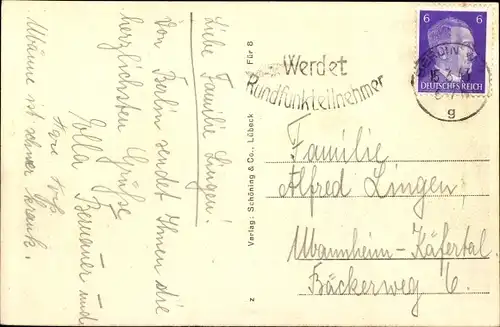 Liebe Familie Lingen!
Von Berlin sendet Ihnen die
herzlichsten Grüße
Ella Bernauer und
Männe ist schwer krank.
Verlag: Schöning & Co., Lübeck
Für S
z
Werdet
Rundfunkteilnehmer
6 6
DEUTSCHES REICH
BERLIN
g
Familie
Alfred Lingen,
Mannheim-Käfertal
Bäckerweg 6.